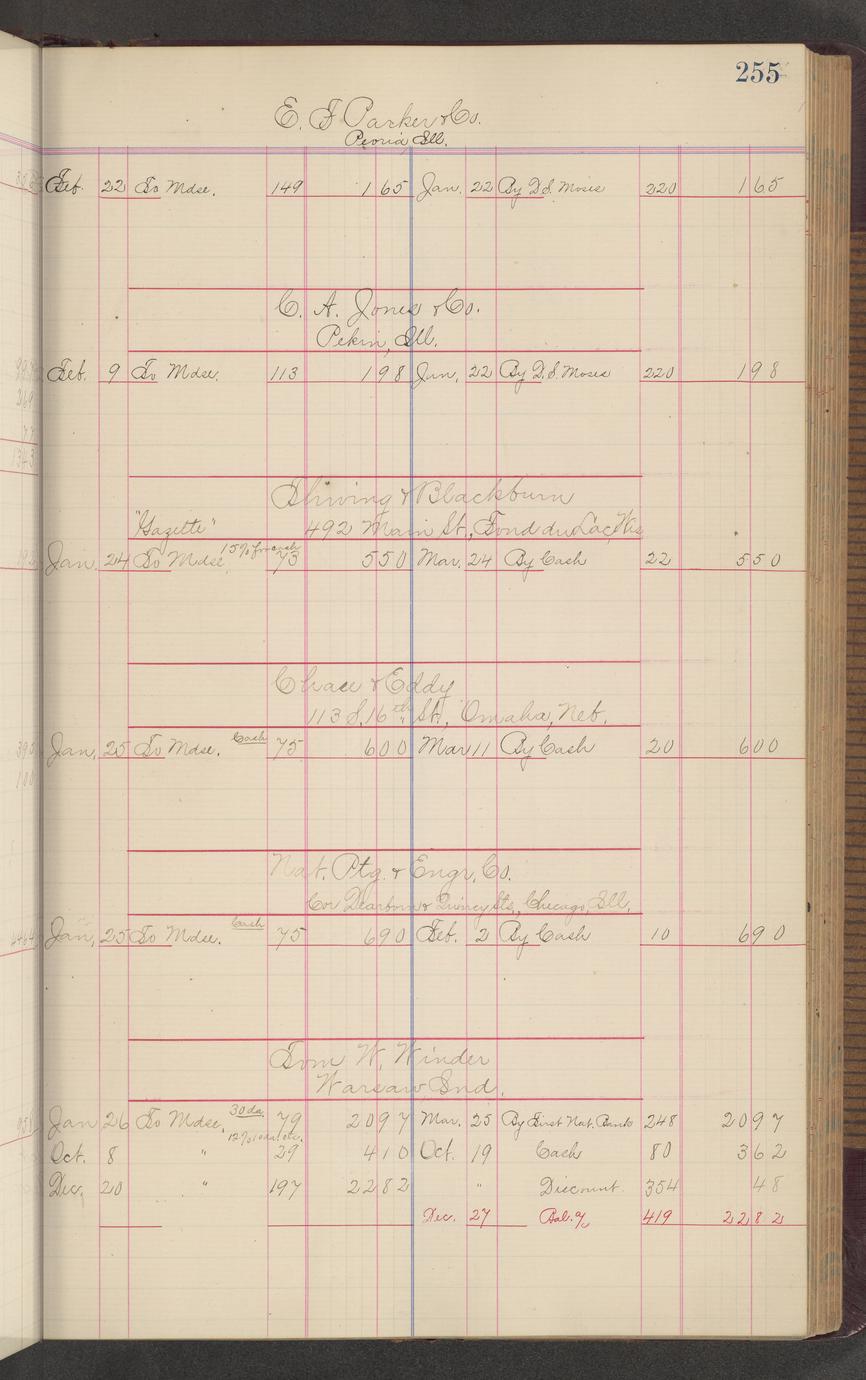 255
E. F. Parker & Co.
Peoria Ill.
Feb. 22 To Mdse. 149 1 65 Jan. 22 By D. S. Moses 220 1 65
C. A. Jones & Co.
Pekin, Ill.
Feb. 9 To Mdse. 113 1 98 Jan. 22 By D. S. Moses 220 1 98
& Blackburn
"Gazette" 492 Main St., Fond du Lac, Wis
15% for cash
Jan. 24 To Mdse. 73 5 50 Mar. 24 By Cash 22 5 50
Chace & Eddy
113 S. 16th St., Omaha, Neb.
Jan. 25 To Mdse. Cash 75 6 00 Mar 11 By Cash 20 6 00
Nat. Ptg. & Engr. Co.
Cor Dearborn & Quincy Sts., Chicago, Ill.
Jan. 25 To Mdse. Cash 75 6 90 Feb. 2 By Cash 10 6 90
Tom W. Winder
Warsaw, Ind.
Jan 26 To Mdse. 30 da. 79 20 97 Mar. 25 By First Nat. Bank 248 20 97
Oct. 8 " 12% 10 da. 29 4 10 Oct. 19 Cash 80 3 62
Dec. 20 " 197 22 82 " Discount. 354 48
Dec. 27 Bal. 419 22 82